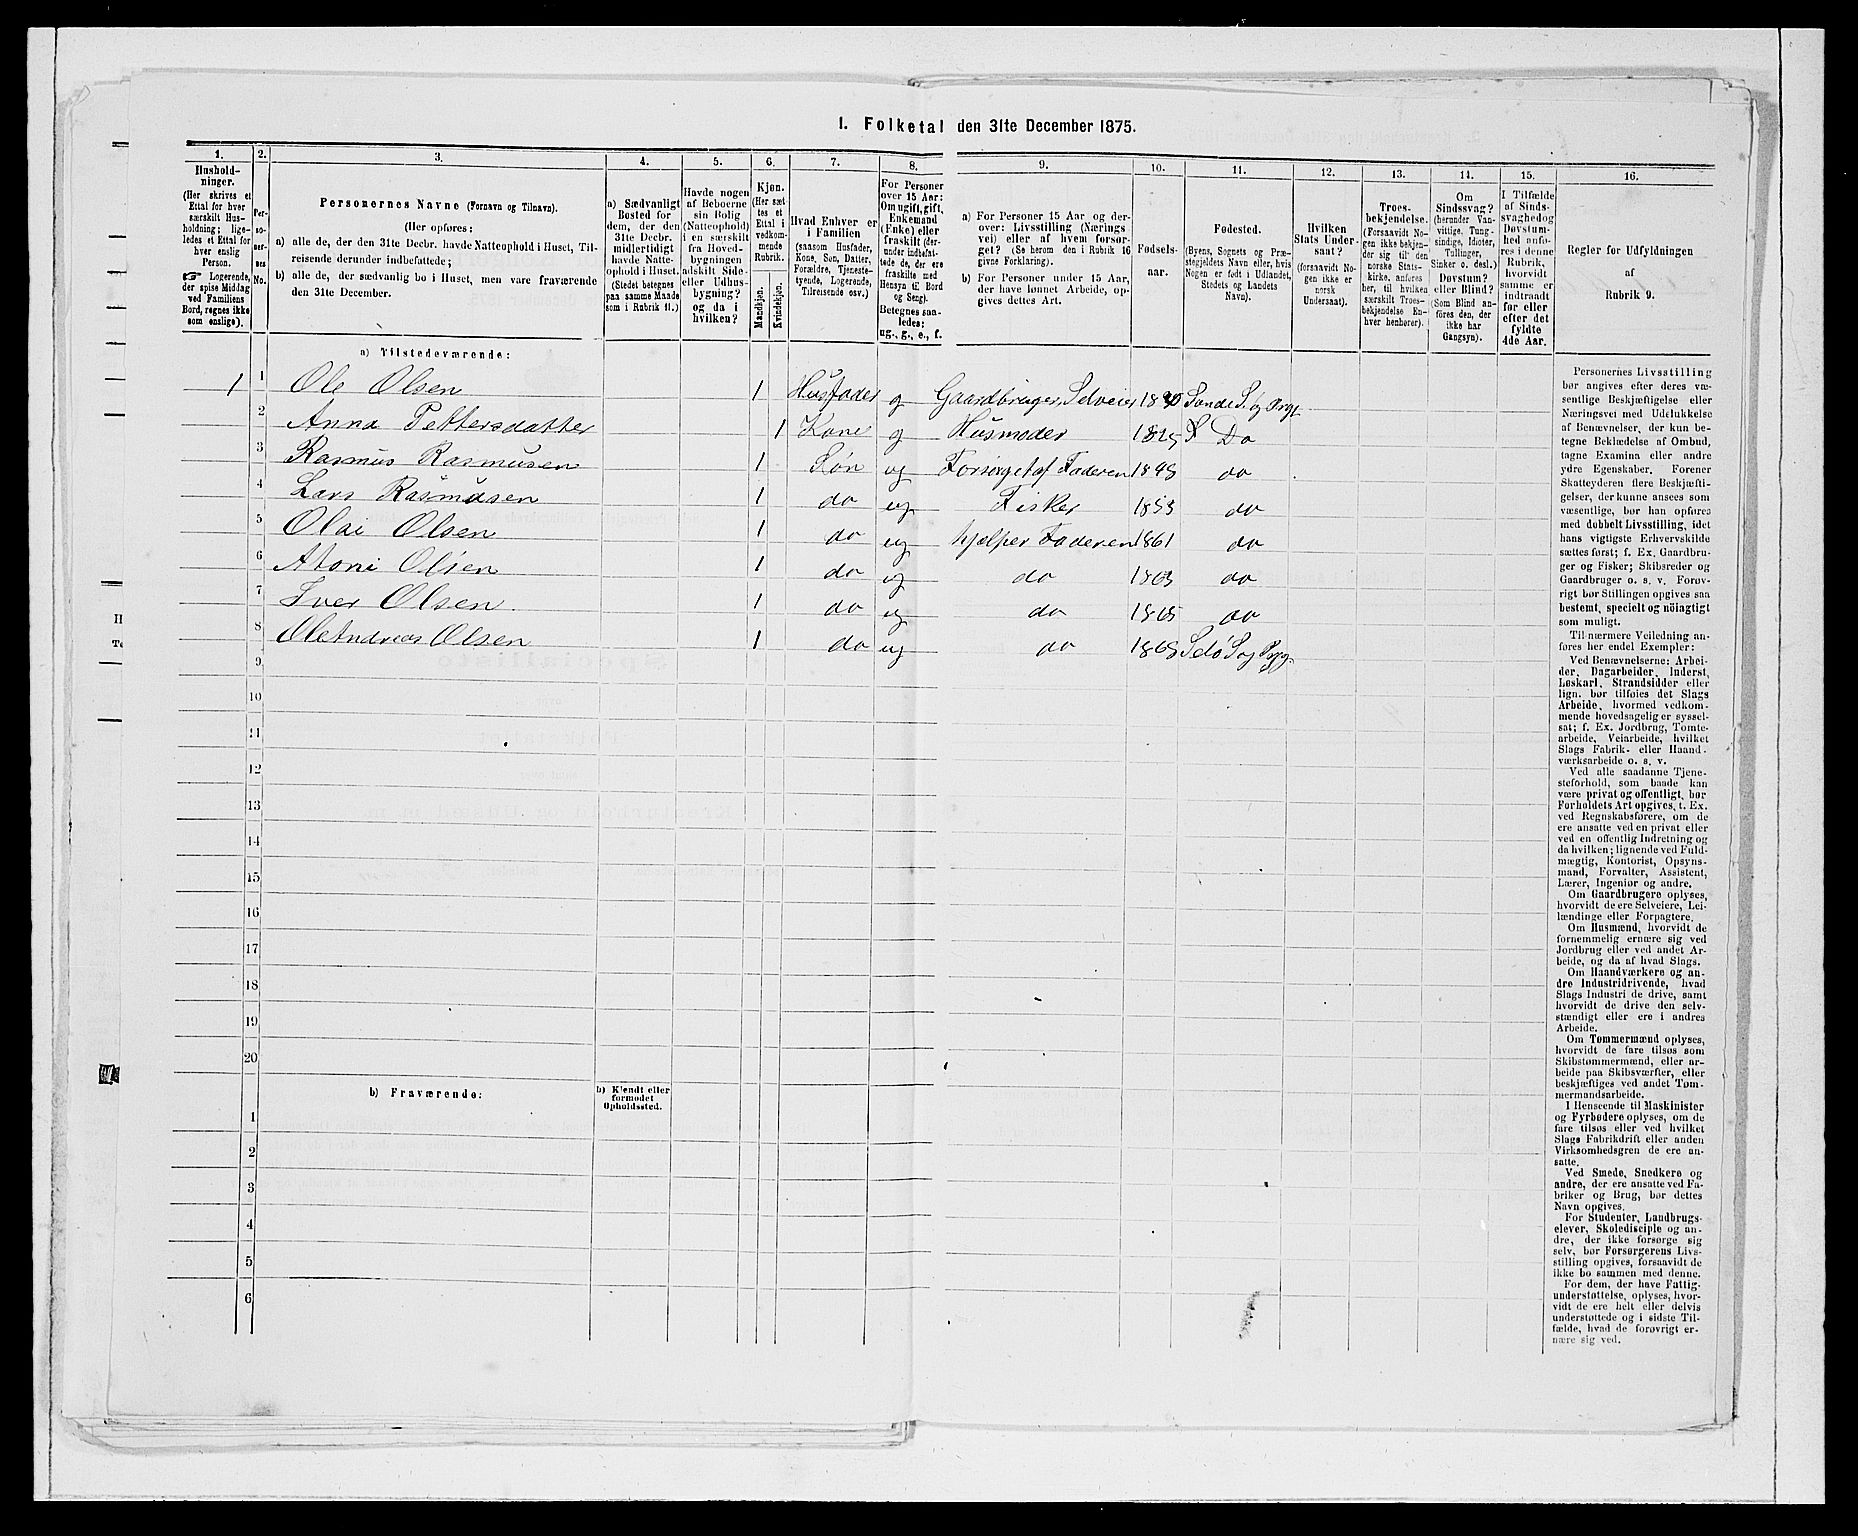 1. Folketal den 31te December 1875.
1.
Hushold-
ninger.
(Her skrives et
Ettal for hver
særskilt Hus-
holdning; lige-
ledes et Ettal for
hver enslig
Person.
☞ Logerende,
der spise Middag
ved Familiens
Bord, regnes ikke
som enslige).
2.
Per-
so-
ner-
nes
No.
3.
Personernes Navne (Fornavn og Tilnavn).
(Her opføres:
a) alle de, der den 31te Decbr. havde Natteophold i Huset, Til-
reisende derunder indbefattede;
b) alle de, der sædvanlig bo i Huset, men vare fraværende
den 31te December.
4.
a) Sædvanligt
Bosted for
dem, der den
31te Decbr.
midlertidigt
havde Natte-
ophold i Huset.
(Stedet betegnes
paa samme Maade
som i Rubrik 11.)
5.
Havde nogen
af Beboerne
sin Bolig
(Natteophold)
i en særskilt
fra Hoved-
bygningen
adskilt Side-
eller Udhus-
bygning?
og da i
hvilken?
6.
Kjøn.
(Her sæt-
tes et
Ettal i
vedkom-
mende
Rubrik.
Mandkjøn.
Kvindekjøn.
7.
Hvad Enhver er
i Familien
(saasom Husfader,
Kone, Søn, Datter,
Forældre, Tjeneste-
tyende, Logerende,
Tilreisende osv.)
8.
For Personer
over 15 Aar:
Om ugift, gift,
Enkemand
(Enke) eller
fraskilt (der-
under indbefat-
tede de, der ere
fraskilte med
Hensyn til Bord
og Seng).
Betegnes saa-
ledes:
ug., g., e., f.
9.
a) For Personer 15 Aar og der-
over: Livsstilling (Nærings-
vei) eller af hvem forsør-
get? (Se herom den i Rubrik 16
givne Forklaring).
b) For Personer under 15 Aar,
der have lønnet Arbeide, op-
gives dettes Art.
10.
Fødsels-
aar.
11.
Fødested.
(Byens, Sognets og Præ-
stegjeldets Navn eller, hvis
Nogen er født i Udlandet,
Stedets og Landets
Navn).
12.
Hvilken
Stats Under-
saat?
(forsaavidt No-
gen ikke er
norsk
Undersaat).
13.
Troes-
bekjendelse.
(Forsaavidt No-
gen ikke bekjen-
der sig til den
norske Stats-
kirke, anføres
her, til hvilken
særskilt Troes-
bekjendelse En-
hver henhører).
14.
Om
Sindssvag?
(herunder Van-
vittige, Tung-
sindige, Idioter,
Tullinger,
Sinker o. desl.)
Døvstum?
eller Blind?
(Som Blind an-
føres den, der
ikke har
Gangsyn).
15.
I Tilfælde
af Sinds-
svaghed og
Døvstum-
hed anfø-
res i denne
Rubrik,
hvorvidt
samme er
indtraadt
før eller
efter det
fyldte
4de Aar.
16.
Regler for Udfyldningen
af
Rubrik 9.
a) Tilstedeværende:
1 1 Ole Olsen 1 Husfader g Gaardbruger, Selveier Sande S. og Prgl
2 Anna Pettersdatter 1 Kone g Husmoder 1825 Do
3 Rasmus Rasmusen 1 Søn ug Forsørget af Faderen 1849 do
4 Lars Rasmusen 1 do ug Fisker 1853 do
5 Olai Olsen 1 do ug hjelper Faderen 1861 do
6 Atoni Olsen 1 do ug do 1863 do
7 Iver Olsen 1 do ug do 1865 do
8 Ole Andreas Olsen 1 do ug do 1869
9
10
11
12
13
14
15
16
17
18
19
20
b) Fraværende:
b) Kjendt eller
formodet
Opholdssted.
1
2
3
4
5
6
Personernes Livsstilling
bør angives efter deres væ-
sentlige Beskjæftigelse eller
Næringsvei med Udelukkelse
af Benævnelser, der kun be-
tegne Beklædelse af Ombud,
tagne Examina eller andre
ydre Egenskaber. Forener
Skatteyderen flere Beskjæfti-
gelser, der kunne ansees som
væsentlige, bør han opføres
med dobbelt Livsstilling, idet
hans vigtigste Erhvervskilde
sættes først; f. Ex. Gaardbru-
ger og Fisker; Skibsreder og
Gaardbruger o. s. v. Forøv-
rigt bør Stillingen opgives saa
bestemt, specielt og nöiagtigt
som muligt.
Til nærmere Veiledning an-
føres her endel Exempler:
Ved Benævnelserne: Arbei-
der, Dagarbeider, Inderst,
Løskarl, Strandsidder eller
lign. bør tilføies det Slags
Arbeide, hvormed vedkom-
mende hovedsagelig er syssel-
sat; f. Ex. Jordbrug, Tomte-
arbeide, Veiarbeide, hvilket
Slags Fabrik- eller Haand-
værksarbeide o. s. v.
Ved alle saadanne Tjene-
steforhold, som baade kan
være privat og offentligt, bør
Forholdets Art opgives, t. Ex.
ved Regnskabsførere, om de
ere ansatte ved en privat eller
ved en offentlig Indretning og
da hvilken; lignende ved Fuld-
mægtig, Kontorist, Opsyns-
mand, Forvalter, Assistent,
Lærer, Ingeniør og andre.
Om Gaardbrugere oplyses,
hvorvidt de ere Selveiere, Lei-
lændinge eller Forpagtere.
Om Husmænd, hvorvidt de
fornemmelig ernære sig ved
Jordbrug eller ved andet Ar-
beide, og da af hvad Slags.
Om Haandværkere og an-
dre Industridrivende, hvad
Slags Industri de drive, samt
hvorvidt de drive den selv-
stændigt eller ere i andres
Arbeide.
Om Tømmermænd oplyses,
hvorvidt de fare tilsøs som
Skibstømmermænd, eller ar-
beide paa Skibsværfter, eller
beskjæftiges ved andet Tøm-
mermandsarbeide.
I Henseende til Maskinister
og Fyrbødere oplyses, om de
fare tilsøs eller ved hvilket
Slags Fabrikdrift eller anden
Virksomhedsgren de ere an-
satte.
Ved Smede, Snedkere og
andre, der ere ansatte ved Fa-
briker og Brug, bør dettes
Navn opgives.
For Studenter, Landbrugs-
elever, Skoledisciple og an-
dre, der ikke forsørge sig
selv, bør Forsørgerens Livs-
stilling opgives, forsaavidt de
ikke bo sammen med denne.
For dem, der have Fattig-
understøttelse, oplyses, hvor-
vidt de ere helt eller delvis
understøttede og i sidste Til-
fælde, hvad de forøvrigt er-
nære sig ved.